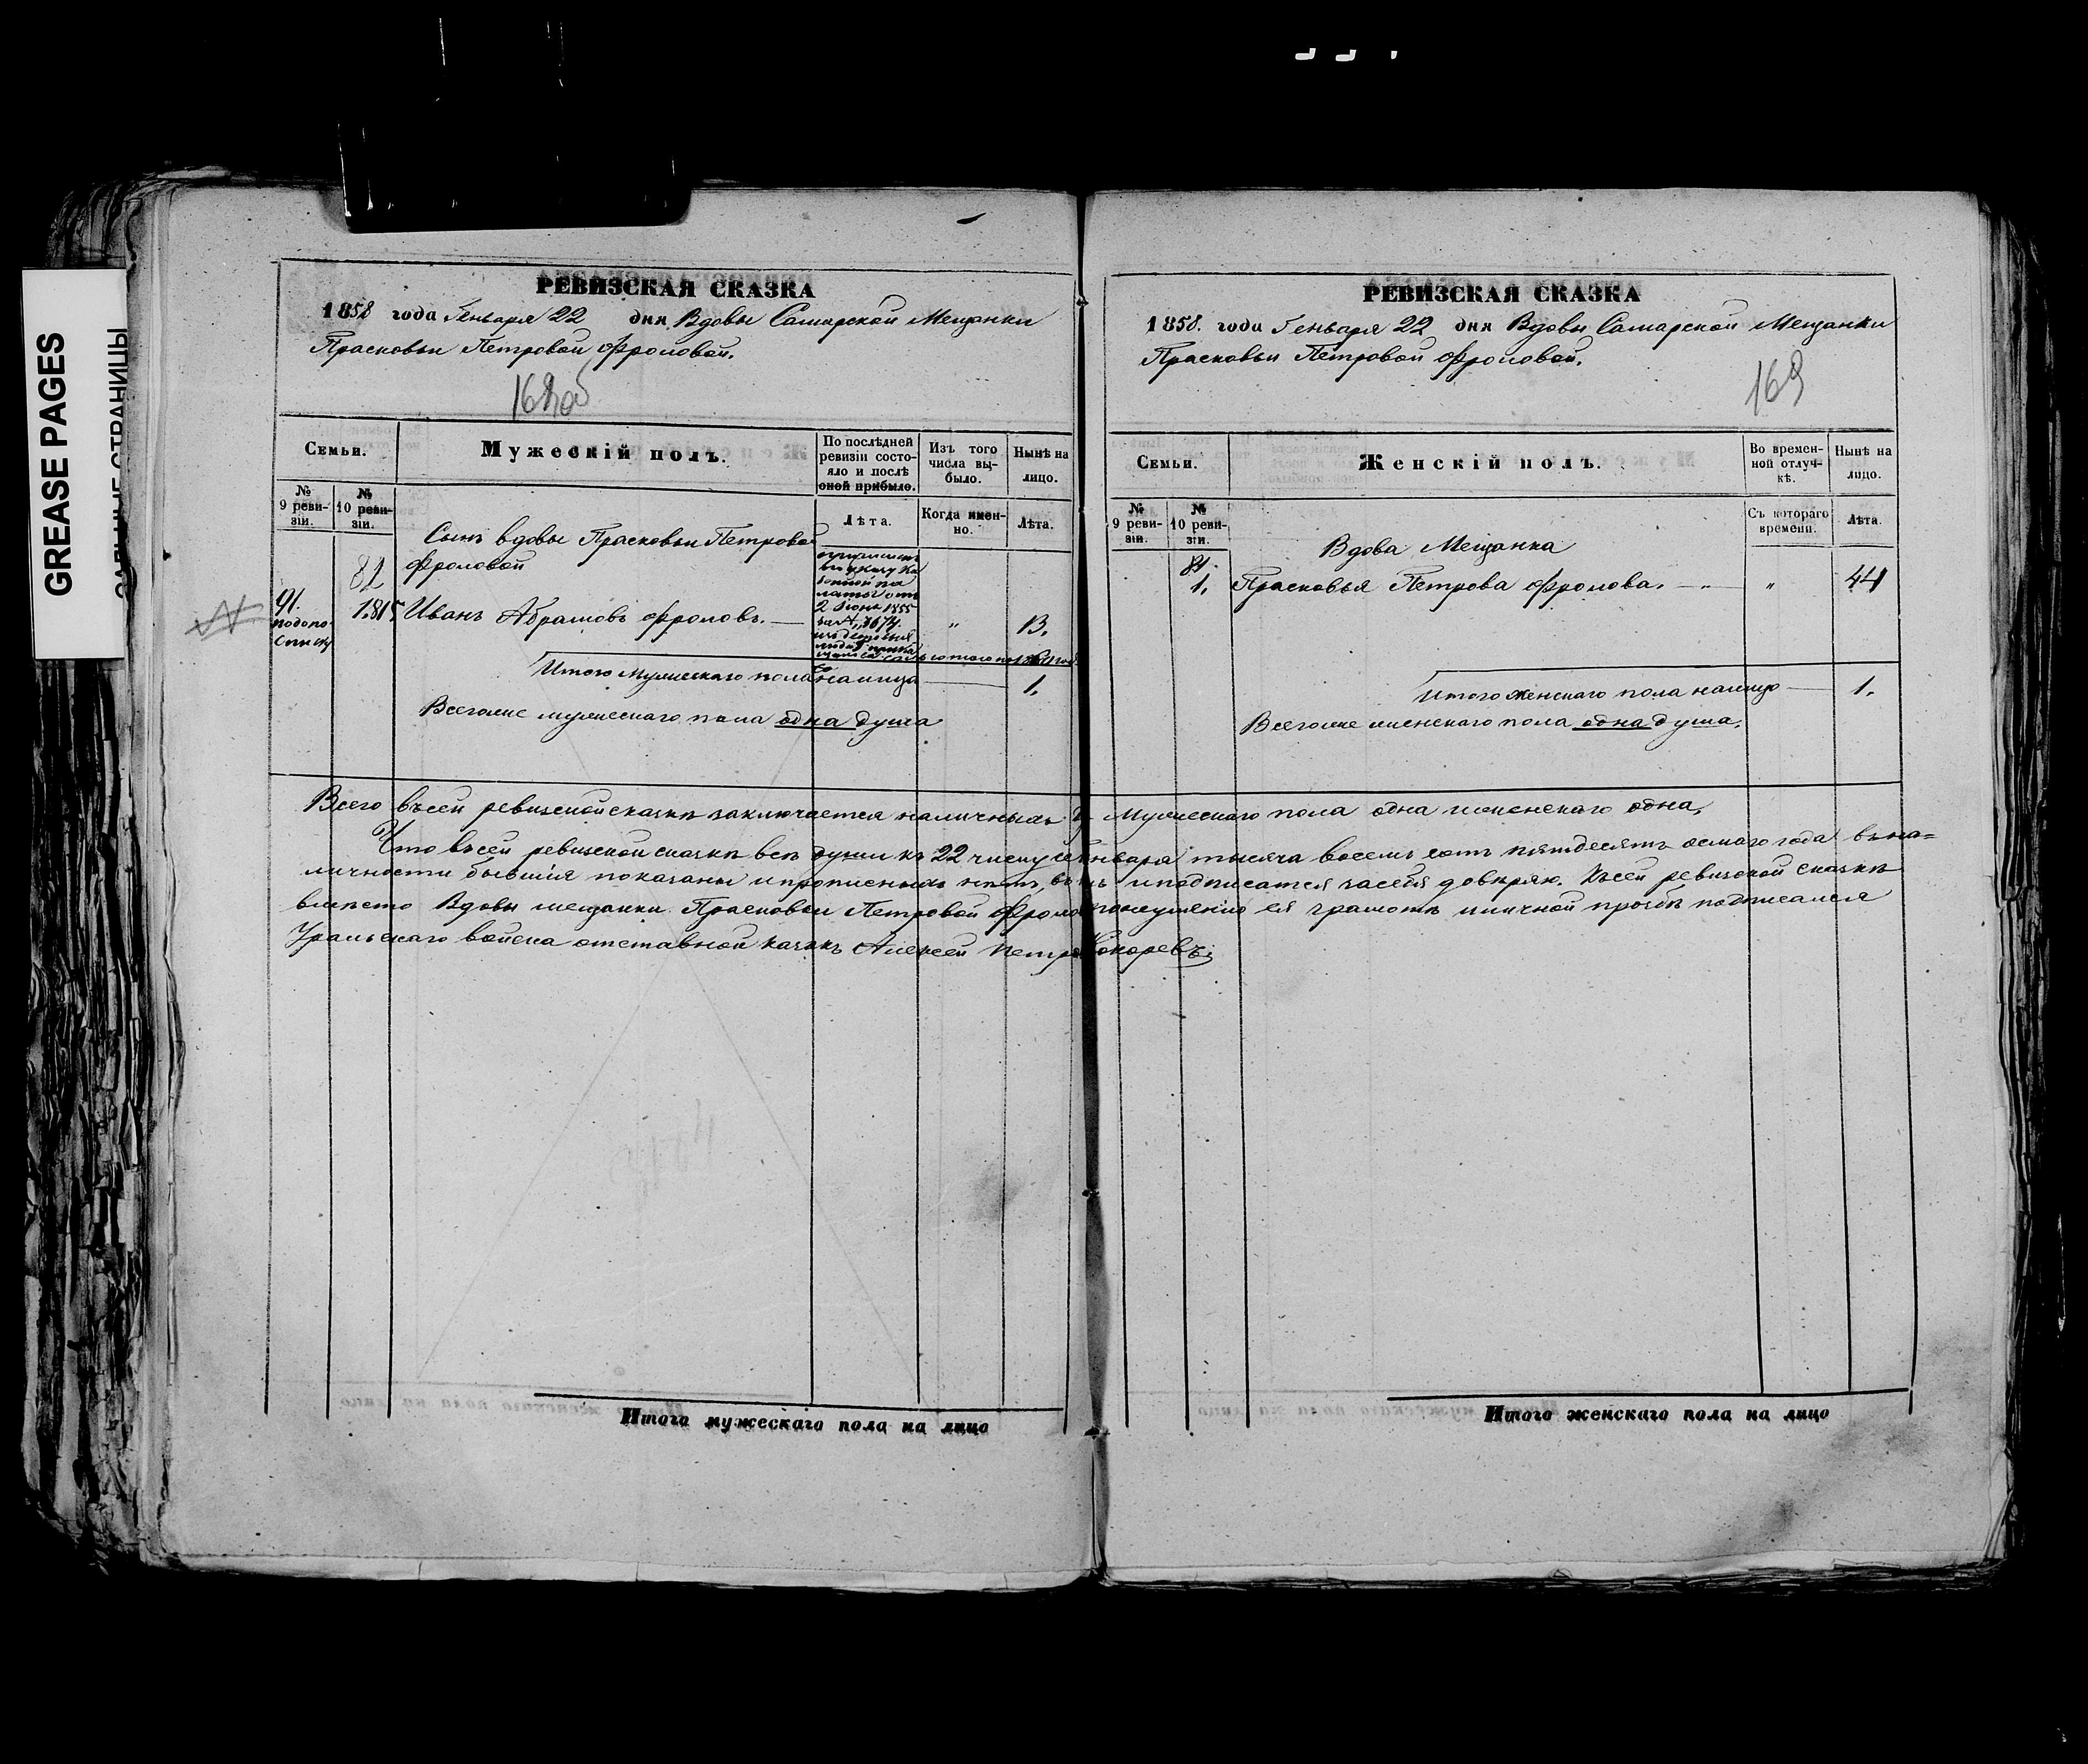 GREASE PAGES
РЕВИЗСКАЯ СКАЗКА
1858 года Генваря 22 дня Вдовы Самарской Мещанки
Прасковьи Петровой Фроловой.
168 об
Семьи.
Мужескій полъ.
По послѣдней ревизіи состояло и послѣ оной прибыло.
Изъ того числа выбыло.
Нынѣ на лицо.
№ 9 ревизіи.
№ 10 ревизіи.
Лѣта.
Когда именно.
Лѣта.
Сынъ вдовы Прасковьи Петровой
Фроловой
82
91.
подопо
списку
1.815
Иванъ Абрамовъ Фроловъ.
2 Июня 1855
"
13.
Итого мужескаго пола налицо
1.
Всегоже мужескаго пола одна душа
РЕВИЗСКАЯ СКАЗКА
1858. года Генваря 22 дня Вдовы Самарской Мещанки
Прасковьи Петровой Фроловой.
169
Семьи.
Женскій полъ.
Во временной отлучкѣ.
Нынѣ на лицо.
№ 9 ревизіи.
№ 10 ревизіи.
Съ котораго времени.
Лѣта.
Вдова Мещанка
1. Прасковья Петрова Фролова. " 44
Итого женскаго пола налицо 1.
Всегоже женскаго пола одна душа.
Всего въсей ревизской сказкѣ заключается наличныхъ Мужескаго пола одна иженскаго одна,
Что въсей ревизской сказкѣ всѣ души къ 22 числу Генваря тысяча восемь сотъ пятдесятъ осмаго года въна=
личности бывшія показаны ипрописныхъ нѣтъ, вчемъ иподписатся засебя довѣряю. Късей ревизской сказкѣ
вмѣсто Вдовы мещанки Прасковьи Петровой Фроловой понеумѣнію ея грамотѣ иличной прозбѣ подписался
Уральскаго войска отставной казакъ Алексей Петровъ Кокаревъ.
Итого мужескаго пола на лицо
Итого женскаго пола на лицо